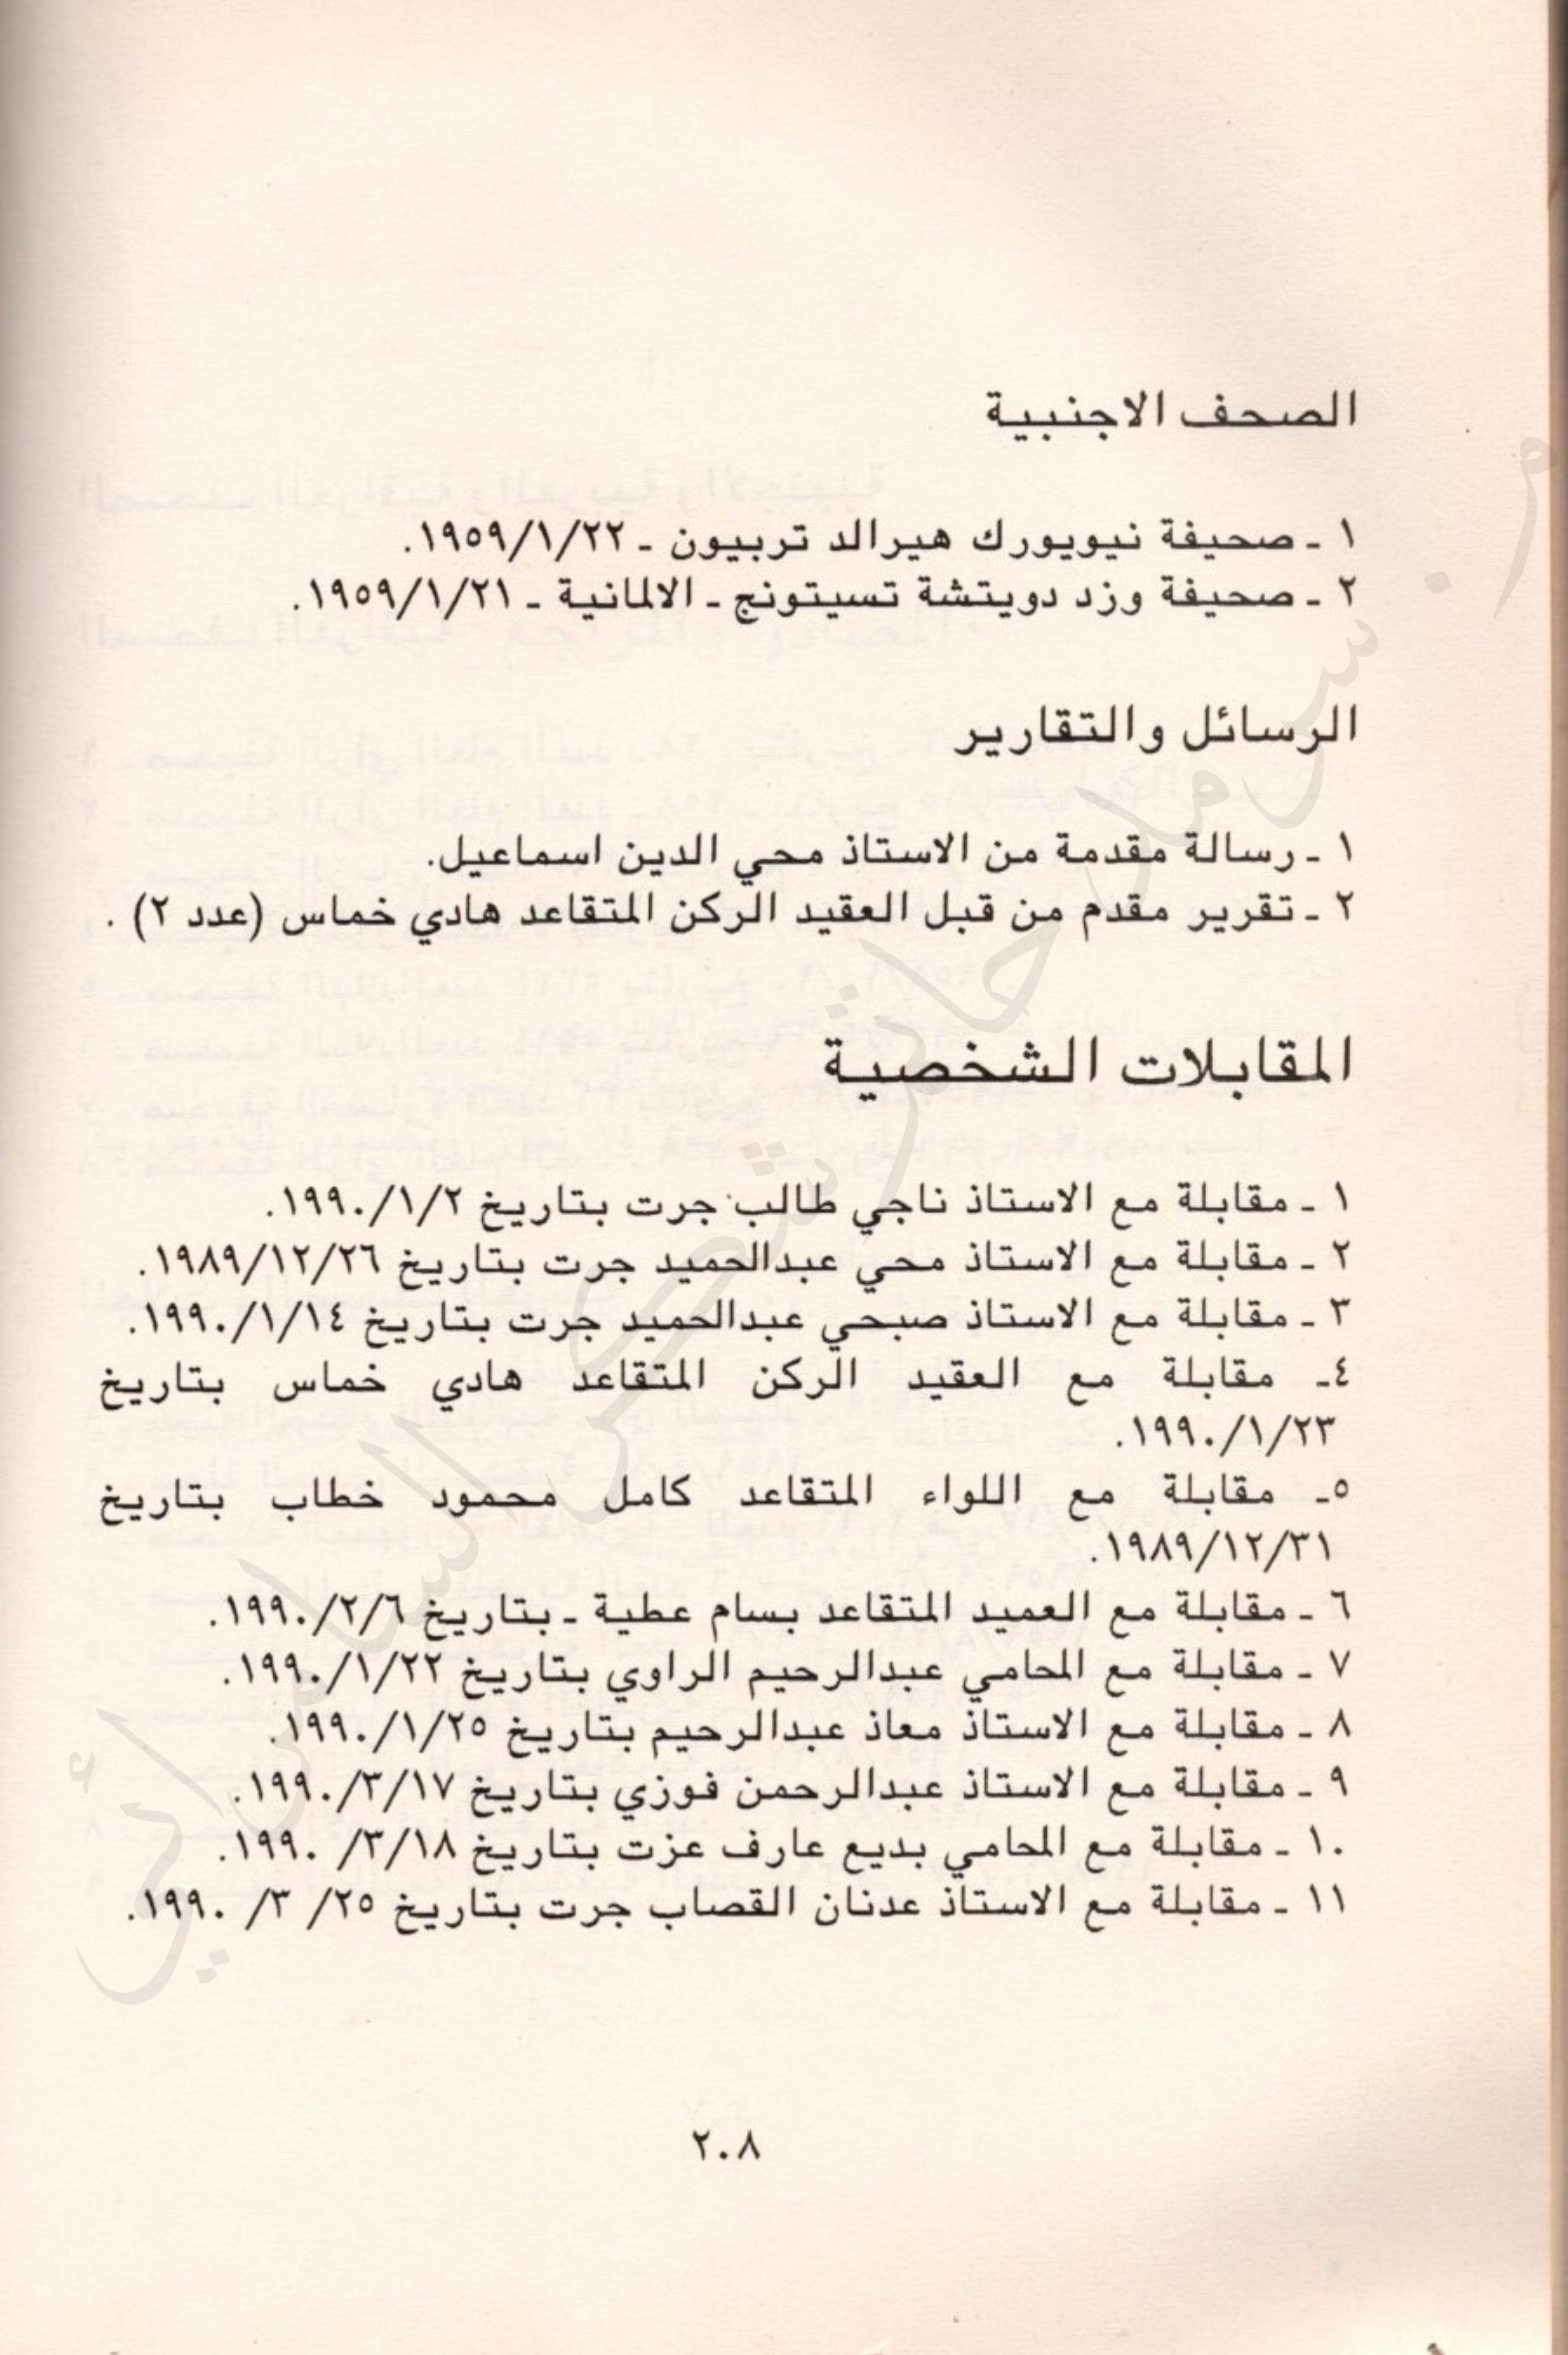 الصحف الاجنبية
١ ـ صحيفة نيويورك هيرالد تربيون ـ ١٩٥٩/١/٢٢.
٢ ـ صحيفة وزد دويتشة تسيتونج ـ الالمانية ـ ١٩٥٩/١/٢١.
الرسائل والتقارير
١ ـ رسالة مقدمة من الاستاذ محي الدين اسماعيل.
٢ ـ تقرير مقدم من قبل العقيد الركن المتقاعد هادي خماس (عدد ٢) .
المقابلات الشخصية
١ ـ مقابلة مع الاستاذ ناجي طالب جرت بتاريخ ١٩٩٠/١/٢.
٢ ـ مقابلة مع الاستاذ محي عبدالحميد جرت بتاريخ ١٩٨٩/١٢/٢٦.
٣ ـ مقابلة مع الاستاذ صبحي عبدالحميد جرت بتاريخ ١٩٩٠/١/١٤.
٤ـ مقابلة مع العقيد الركن المتقاعد هادي خماس بتاريخ
١٩٩٠/١/٢٣.
٥ـ مقابلة مع اللواء المتقاعد كامل محمود خطاب بتاريخ
١٩٨٩/١٢/٣١.
٦ ـ مقابلة مع العميد المتقاعد بسام عطية ـ بتاريخ ١٩٩٠/٢/٦.
٧ ـ مقابلة مع المحامي عبدالرحيم الراوي بتاريخ ١٩٩٠/١/٢٢.
٨ ـ مقابلة مع الاستاذ معاذ عبدالرحيم بتاريخ ١٩٩٠/١/٢٥.
٩ ـ مقابلة مع الاستاذ عبدالرحمن فوزي بتاريخ ١٩٩٠/٣/١٧.
١٠ ـ مقابلة مع المحامي بديع عارف عزت بتاريخ ١٩٩٠ /٣/١٨.
١١ ـ مقابلة مع الاستاذ عدنان القصاب جرت بتاريخ ٢٥/ ٣/ ١٩٩٠.
٢٠٨